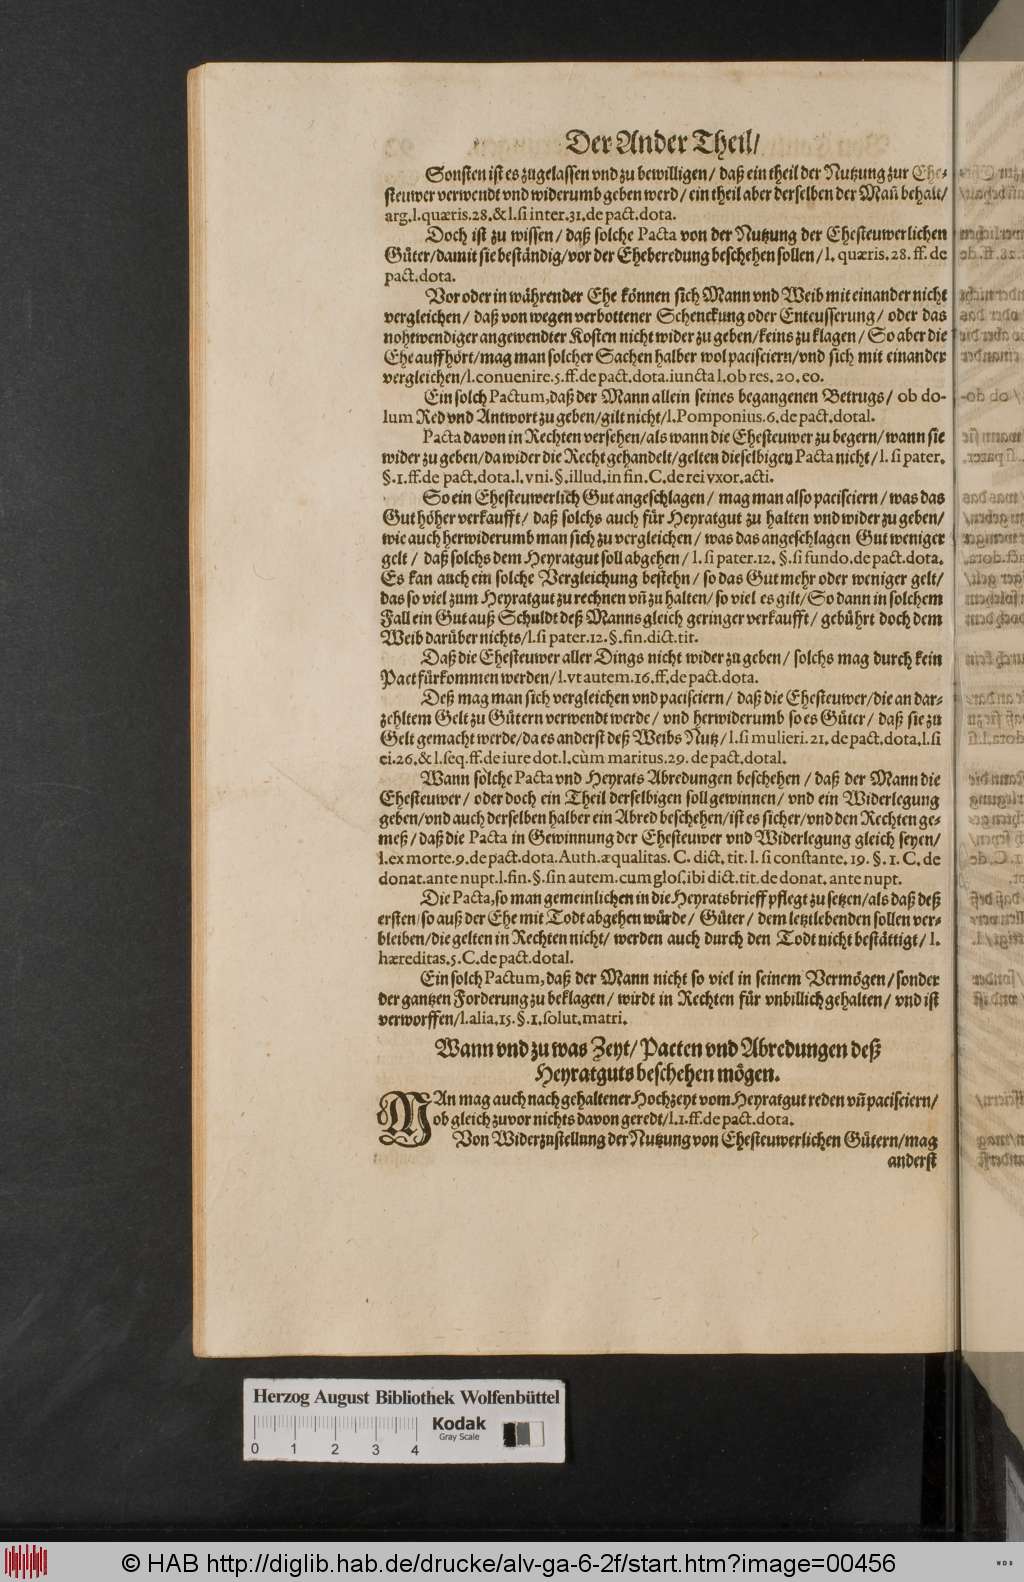 Der Ander Theil/
Sonsten ist es zugelassen vnd zu bewilligen/ daß ein theil der Nutzung zur Ehe-
steuwer verwendt vnd widerumb geben werd/ ein theil aber derselben der Mañ behalt/
arg. l. quæris. 28. & l. si inter. 31. de pact. dota.
Doch ist zu wissen/ daß solche Pacta von der Nutzung der Ehesteuwerlichen
Güter/ damit sie beständig/ vor der Eheberedung beschehen sollen/ l. quæris. 28. ff. de
pact. dota.
Vor oder in währender Ehe können sich Mann vnd Weib mit einander nicht
vergleichen/ daß von wegen verbottener Schenckung oder Enteusserung/ oder das
nohtwendiger angewendter Kosten nicht wider zu geben/ keins zu klagen/ So aber die
Ehe auffhört/ mag man solcher Sachen halber wol pacisciern/ vnd sich mit einander
vergleichen/ l. conuenire. 5. ff. de pact. dota. iuncta l. ob res. 20. eo.
Ein solch Pactum, daß der Mann allein seines begangenen Betrugs/ ob do-
lum Red vnd Antwort zu geben/ gilt nicht/ l. Pomponius. 6. de pact. dotal.
Pacta davon in Rechten versehen/ als wann die Ehesteuwer zu begern/ wann sie
wider zu geben/ da wider die Recht gehandelt/ gelten dieselbigen Pacta nicht/ l. si pater.
§. 1. ff. de pact. dota. l. vni. §. illud. in fin. C. de rei vxor. acti.
So ein Ehesteuwerlich Gut angeschlagen/ mag man also pacisciern/ was das
Gut höher verkaufft/ daß solchs auch für Heyratgut zu halten vnd wider zu geben/
wie auch herwiderumb man sich zu vergleichen/ was das angeschlagen Gut weniger
gelt/ daß solchs dem Heyratgut soll abgehen/ l. si pater. 12. §. si fundo. de pact. dota.
Es kan auch ein solche Vergleichung bestehn/ so das Gut mehr oder weniger gelt/
das so viel zum Heyratgut zu rechnen vñ zu halten/ so viel es gilt/ So dann in solchem
Fall ein Gut auß Schuldt deß Manns gleich geringer verkaufft/ gebührt doch dem
Weib darüber nichts/ l. si pater. 12. §. fin. dict. tit.
Daß die Ehesteuwer aller Dings nicht wider zu geben/ solchs mag durch kein
Pact fürkommen werden/ l. vt autem. 16. ff. de pact. dota.
Deß mag man sich vergleichen vnd pacisciern/ daß die Ehesteuwer/ die an dar-
zehltem Gelt zu Gütern verwendt werde/ vnd herwiderumb so es Güter/ daß sie zu
Gelt gemacht werde/ da es anderst deß Weibs Nutz/ l. si mulieri. 21. de pact. dota. l. si
ei. 26. & l. seq. ff. de iure dot. l. cùm maritus. 29. de pact. dotal.
Wann solche Pacta vnd Heyrats Abredungen beschehen/ daß der Mann die
Ehesteuwer/ oder doch ein Theil derselbigen soll gewinnen/ vnd ein Widerlegung
geben/ vnd auch derselben halber ein Abred beschehen/ ist es sicher/ vnd den Rechten ge-
meß/ daß die Pacta in Gewinnung der Ehesteuwer vnd Widerlegung gleich seyen/
l. ex morte. 9. de pact. dota. Auth. æqualitas. C. dict. tit. l. si constante. 19. §. 1. C. de
donat. ante nupt. l. fin. §. sin autem. cum glos. ibi dict. tit. de donat. ante nupt.
Die Pacta, so man gemeinlichen in die Heyratsbrieff pflegt zu setzen/ als daß deß
ersten/ so auß der Ehe mit Todt abgehen würde/ Güter/ dem letztlebenden sollen ver-
bleiben/ die gelten in Rechten nicht/ werden auch durch den Todt nicht bestättigt/ l.
hæreditas. 5. C. de pact. dotal.
Ein solch Pactum, daß der Mann nicht so viel in seinem Vermögen/ sonder
der gantzen Forderung zu beklagen/ wirdt in Rechten für vnbillich gehalten/ vnd ist
verworffen/ l. alia. 15. §. 1. solut. matri.
Wann vnd zu was Zeyt/ Pacten vnd Abredungen deß
Heyratguts beschehen mögen.
MAn mag auch nach gehaltener Hochzeyt vom Heyratgut reden vñ pacisciern/
ob gleich zuvor nichts davon geredt/ l. 1. ff. de pact. dota.
Von Widerzustellung der Nutzung von Ehesteuwerlichen Gütern/ mag
anderst
Herzog August Bibliothek Wolfenbüttel
Kodak
Gray Scale
0 1 2 3 4
© HAB http://diglib.hab.de/drucke/alv-ga-6-2f/start.htm?image=00456